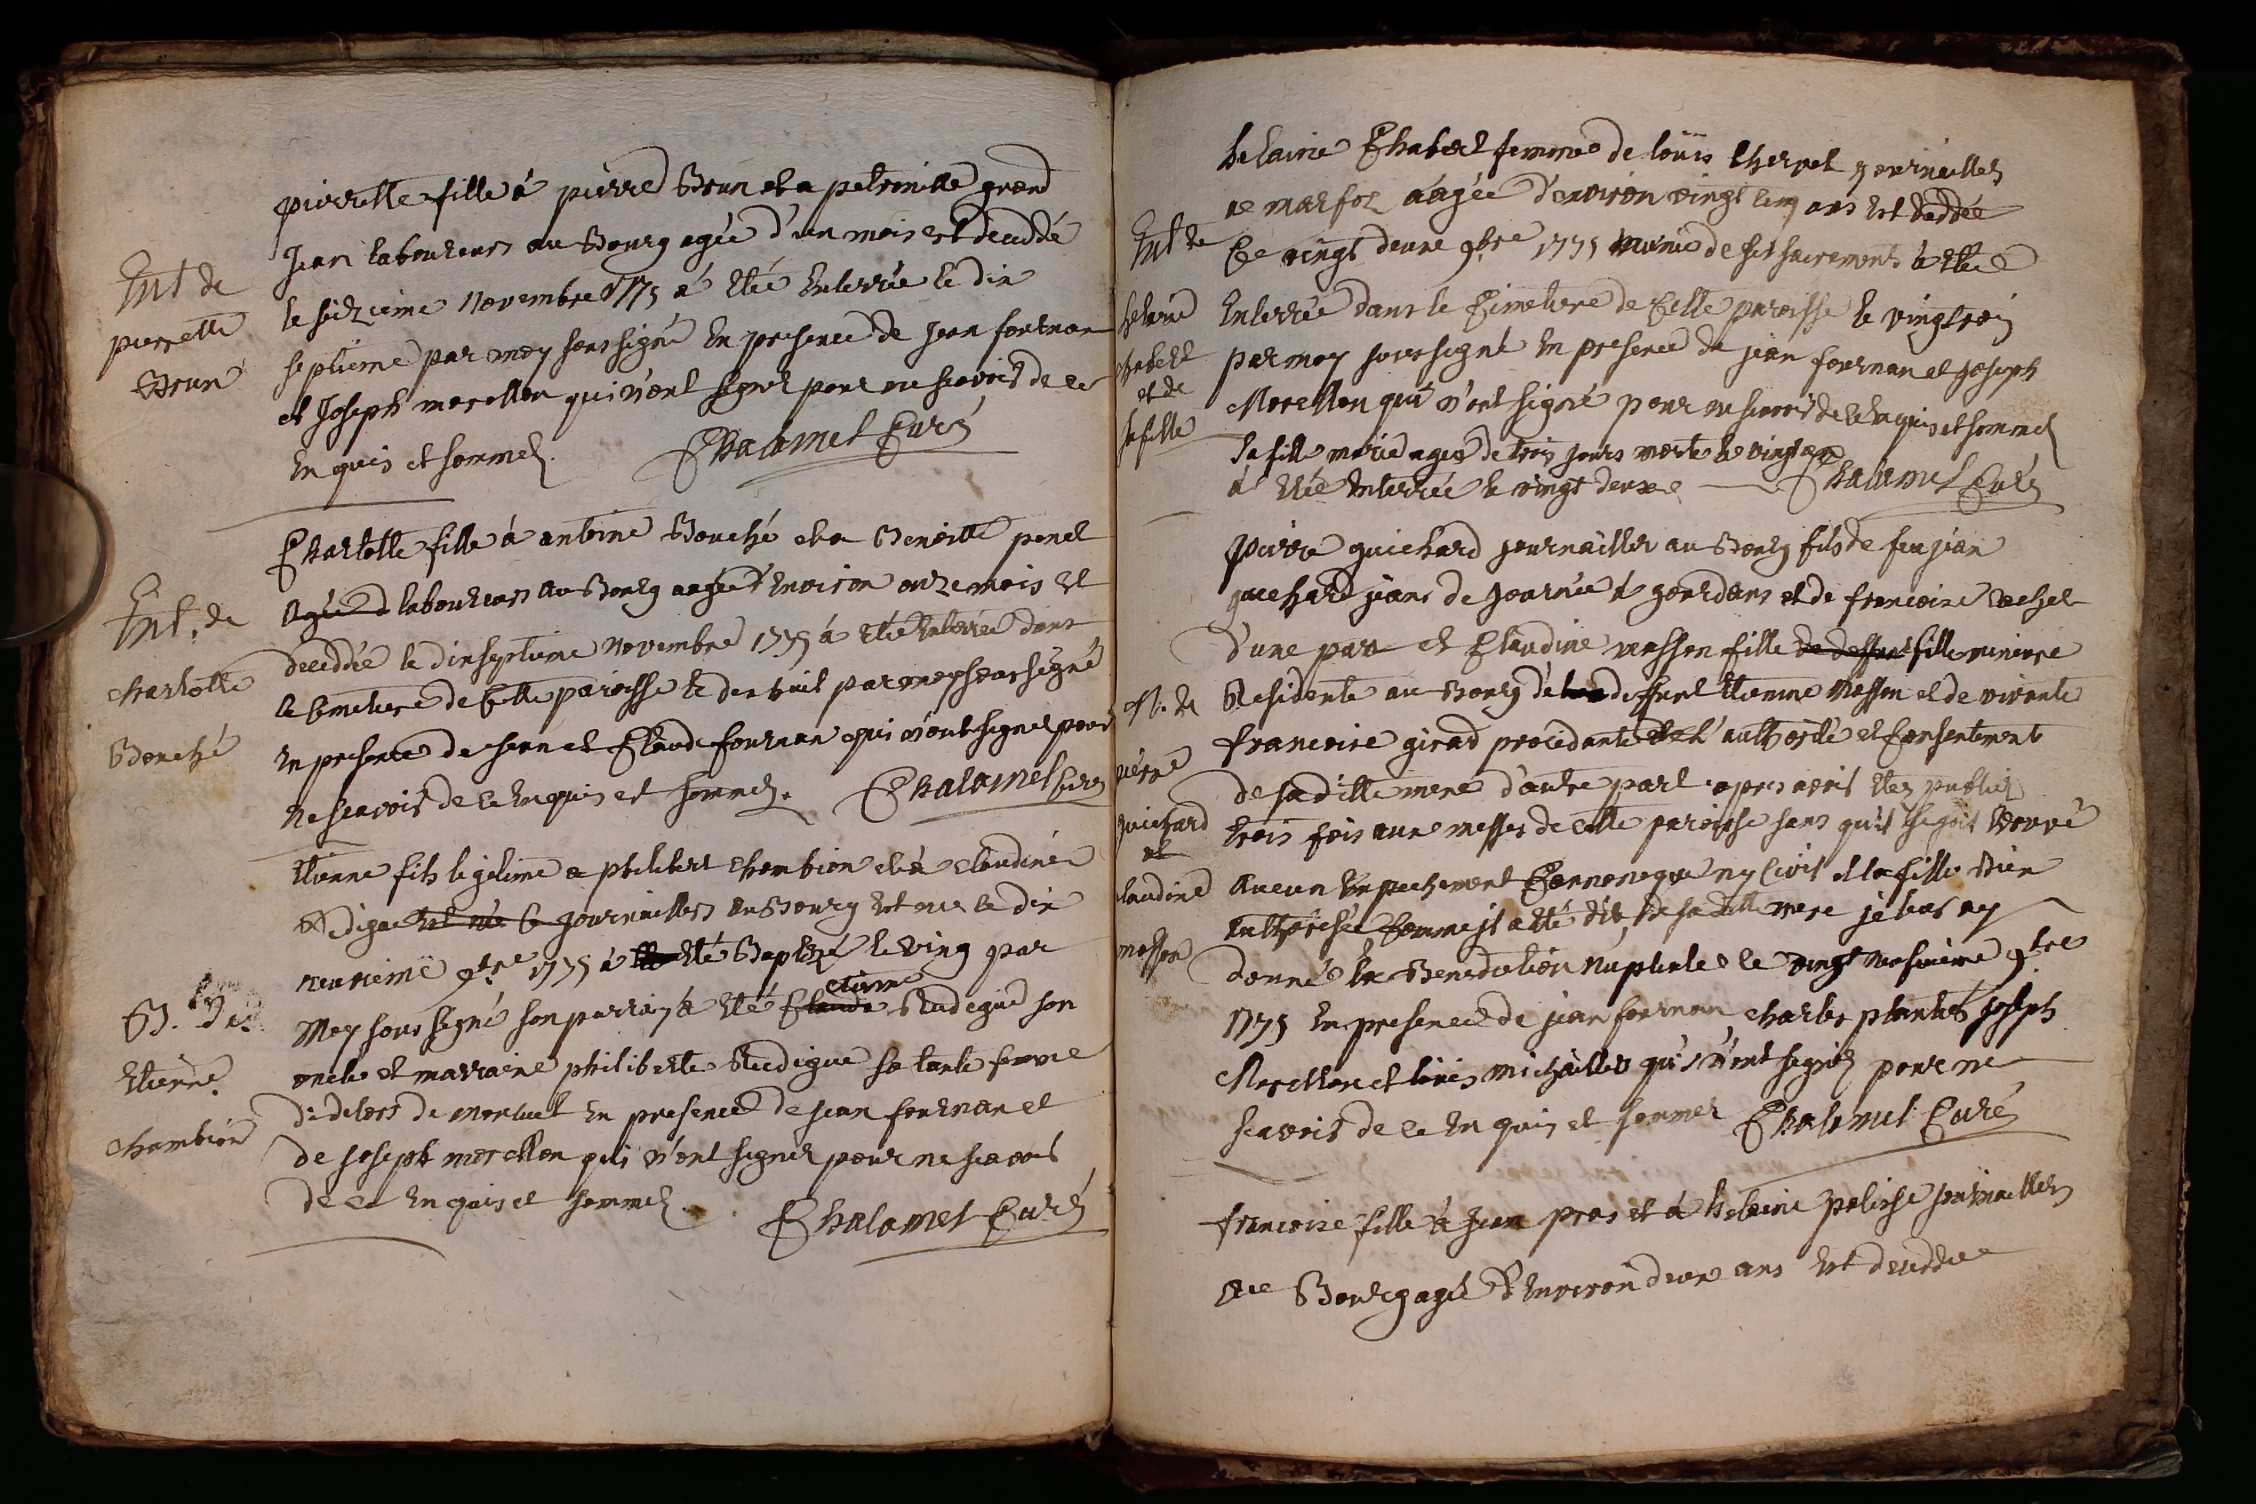 Ent de
pierrette
Brun
pierrette fille á pierre Brun et a petronille grand
Jean laboureurs au Bourg agée d'un mois est decedde
le seizieme Novembre 1775 á etée Enterrée le dix
septieme par moy soussigné En presence de jean fournan
et Joseph morellon qui n'ont signer pour ne scavoir de ce
En quis et sommez. Chalamel Curé
Ent. de
charlotte
Bouché
Charlotte fille á antoine Bouché et a Benoitte penet
laboureurs au Bourg aagée d'Environ onze mois est
décedée le dixseptieme Novembre 1775 á etée Enterrée dans
le Cimetiere de Cette paroisse le dix huit par moy soussigné
En presence de jean et Claude fournan qui n'ont signer pour
Ne scavoir de ce Enquis et sommez. Chalamel Curé
B. de
Etienne
chambion
Etienne fils legitime a philibert chambion et á claudine
Redigue journaillers au Bourg est né le dix
neuvieme 9bre 1775 á eté Baptizé le Ving par
Moy sous signé son parrain á eté etienne Redigue son
oncle et marraine philiberte Redigue sa tante femme
de montuel En presence de jean fournan et
de joseph morellon qui n'ont signer pour ne scavoir
de ce Enquis et sommez Chalamel Curé
Ent de
helaine
chabert
et de
sa fille
helaine Chabert femme de loüis journailler
de marfoz aagée d'environ vingt cinq ans est deceddée
Ce vingt deux 9bre 1775 munie de ses sacrements á etée
Enterrée dans le Cimetiere de Cette paroisse le vingt trois
par moy soussigné En presence de jean fournan et joseph
Morellon qui n'ont signé pour ne scavoir de ce Enquis et sommez
sa fille marie agée de trois jours morte le vingt un
á etée Enterrée le vingt deux Chalamel Curé
M. de
pierre
guichard
et
claudine
masson
pierre guichard journailler au Bourg fils de feu jean
guichard jeans de journée á gourdans et de francoise
d'une part et Claudine masson fille fille mineure
Residente au Bourg de deffunt Etienne Masson et de vivante
francoise girad procedante de l'authorité et Consentement
de sa ditte mere d'autre part apres avoir etez publiez
trois fois aux messes de cette paroisse sans qu'il se soit trouvé
Aucun Empechement Cannonique ny Civil et la fille Bien
authorisée Comme il a eté dit de sa ditte mere je leur ay
donné la Benediction Nuptiale le vingt neufvieme 9bre
1775 En presence de jean fournan charles plantier joseph
Morellon et loüis michailler qui n'ont signéz pour ne
scavoir de ce Enquis et sommer Chalamel Curé
francoise fille á jean pras et á helaine pelisse journaillers
au Bourg agée d'Environ deux ans est deceddée